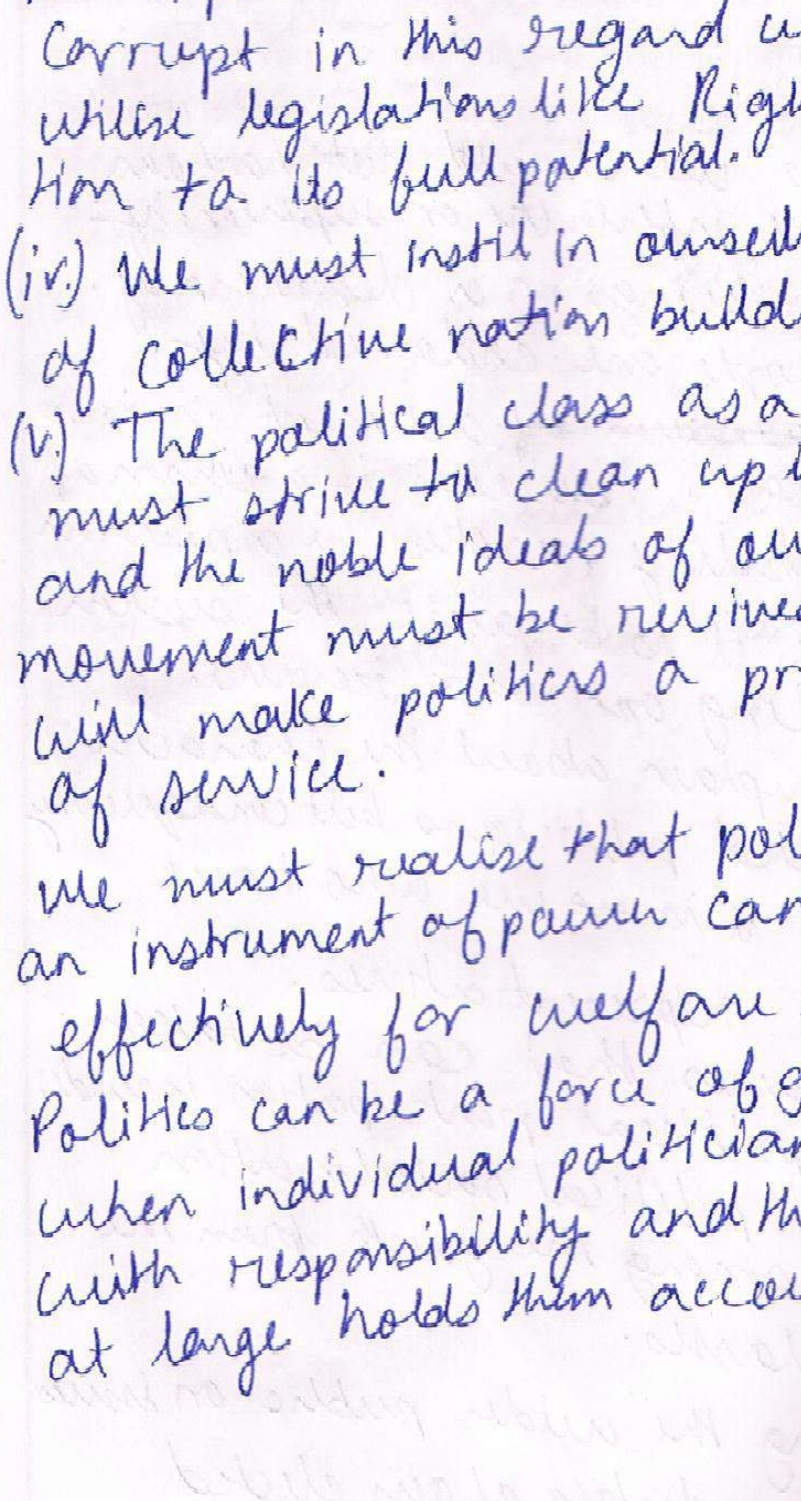 Corrupt in this regard
utilise legislations like Righ
tion to its full potential.
(iv.) We must instil in oursel
of collective nation build
(v.) The political class as a
must strive to clean up
and the noble ideals of ou
movement must be revive
will make politics a pr
of service.
We must realise that pol
an instrument of power can
effectively for welfare
Politics can be a force of g
when individual politician
with responsibility and th
at large holds them accou